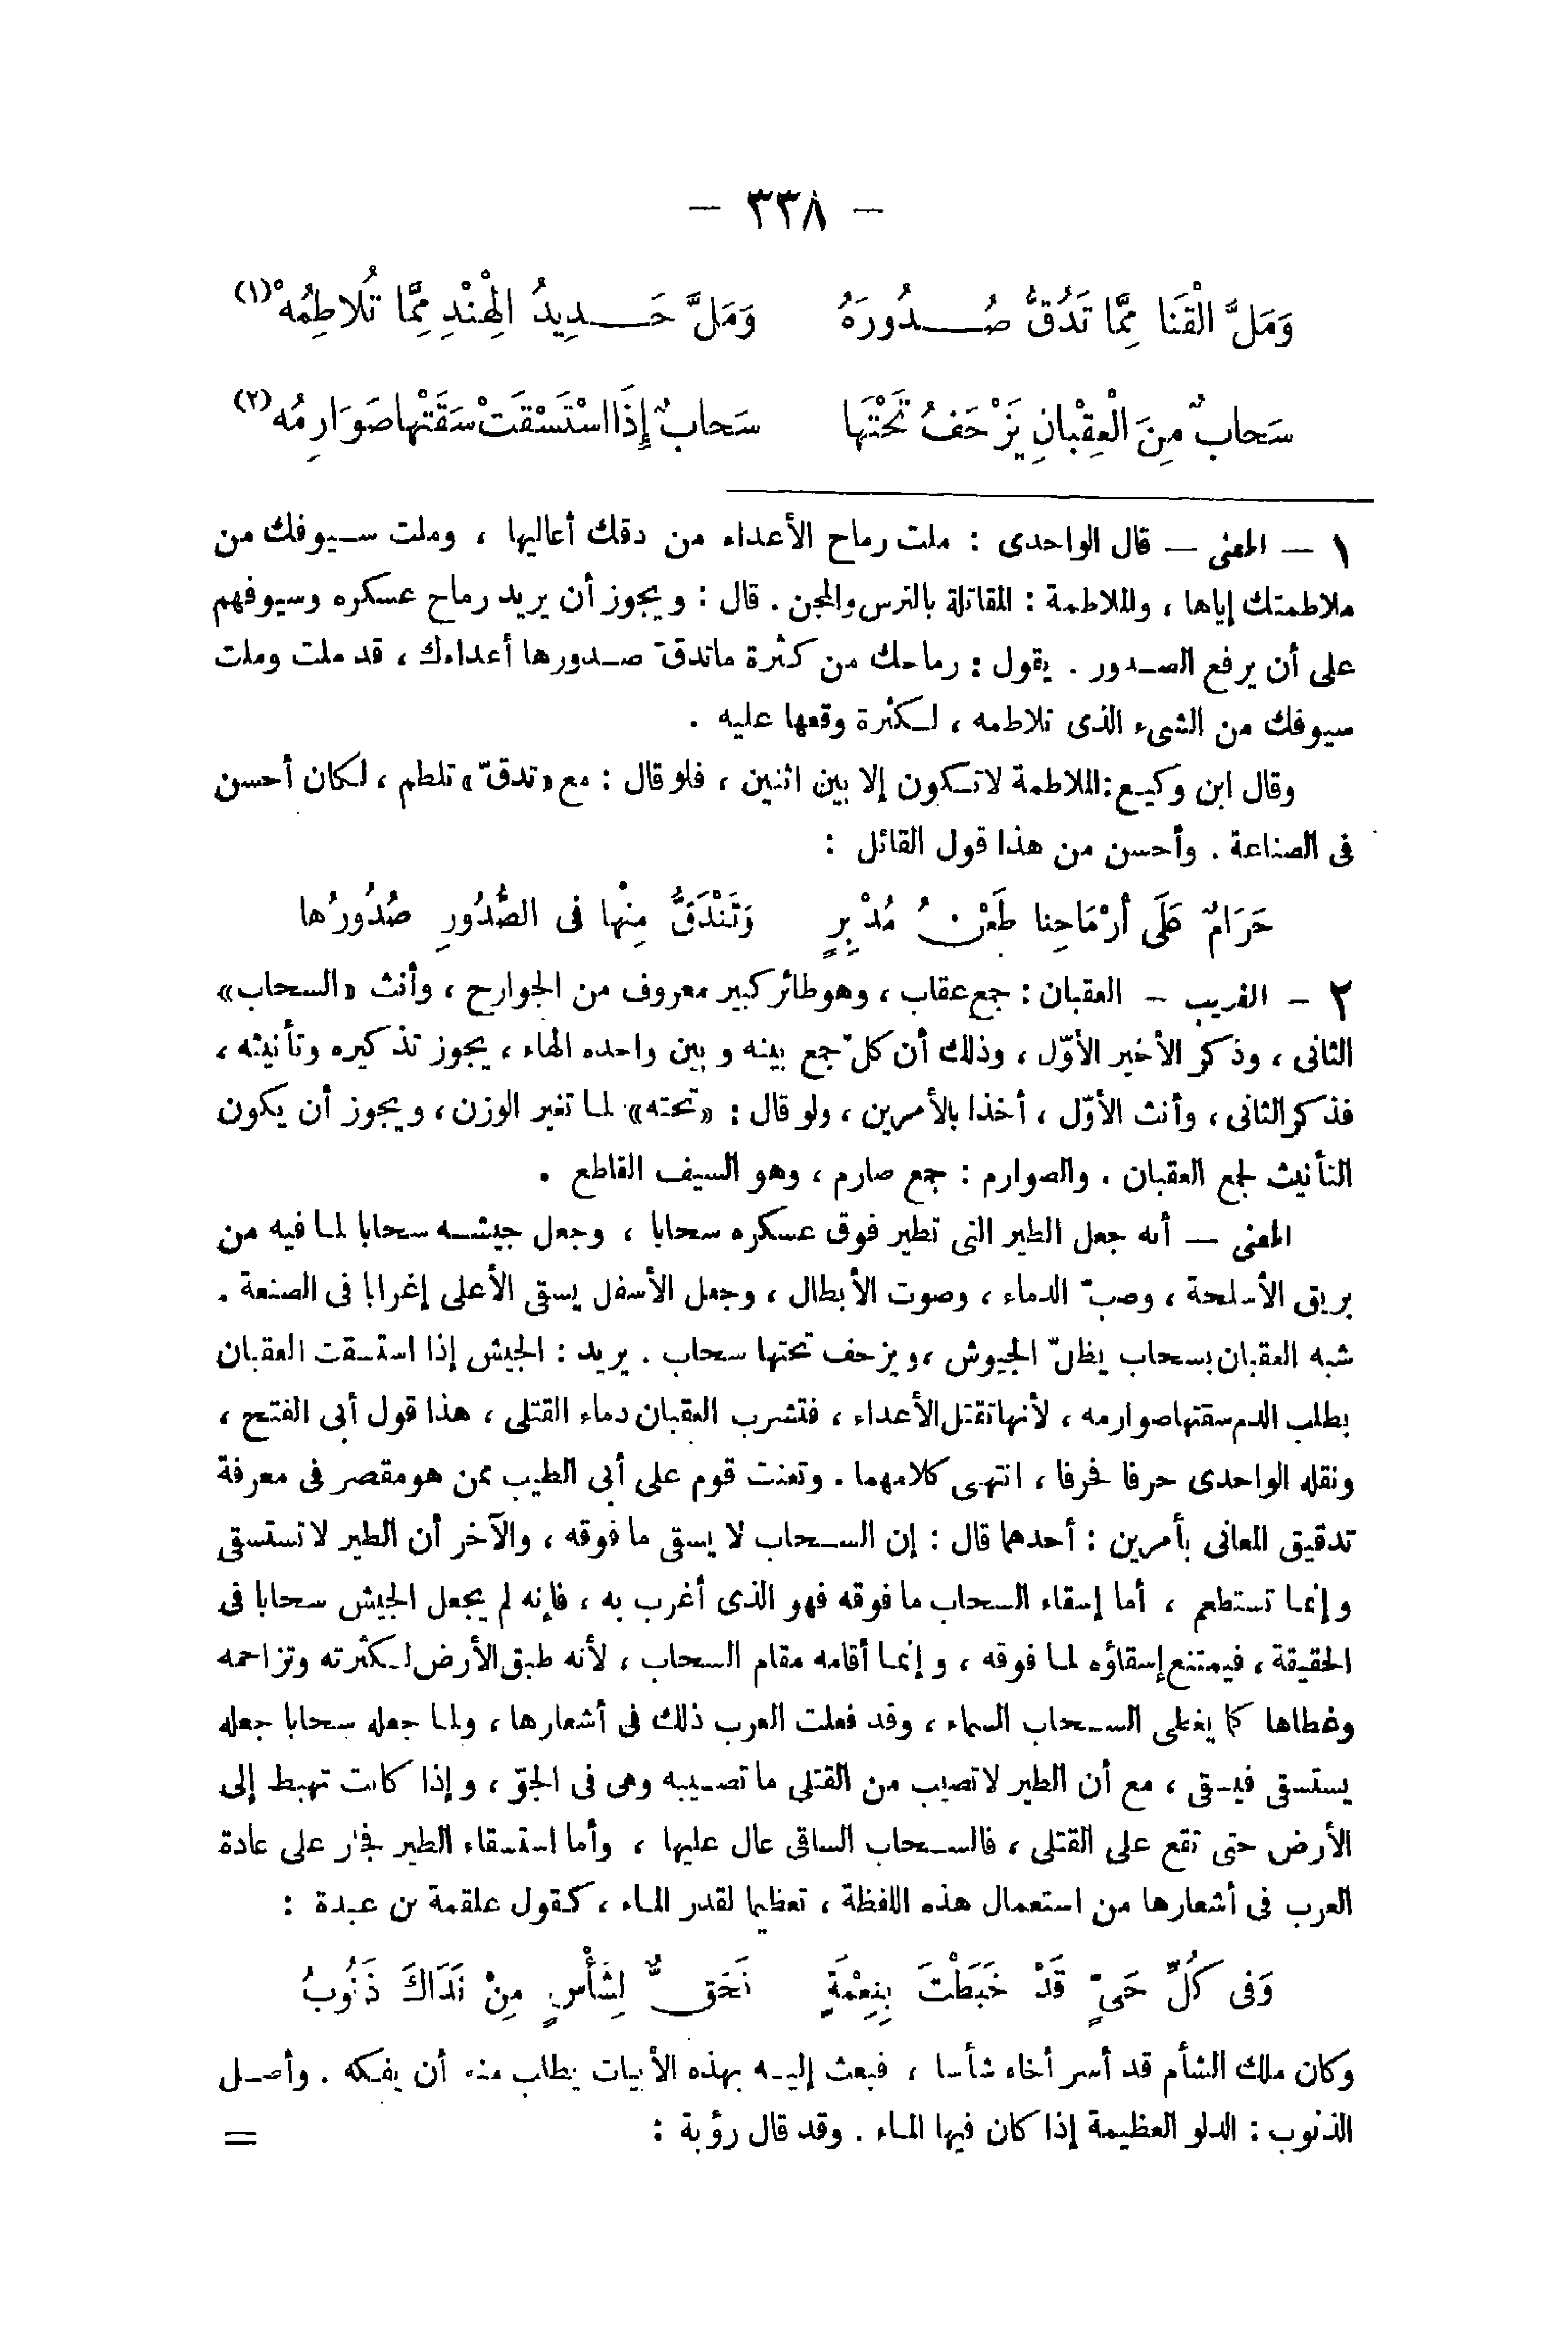 – ٣٣٨ –
وَمَلَّ الْقَنَا مِمَّا تَدُقُّ صُدُورَهُ وَمَلَّ حَدِيدُ الْهِنْدِ مِمَّا تُلَاطِمُهْ (١)
سَحابٌ مِنَ الْعِقْبانِ يَزْحَفُ تَحْتَهَا سَحابٌ إِذَا اسْتَسْقَتْ سَقَتْها صَوَارِمُه (٢)
١ – المعنى – قال الواحدى : ملت رماح الأعداء من دقك أعاليها ، وملت سيوفك من
ملاطمتك إياها ، والملاطمة : المقاتلة بالترس والمجن . قال : ويجوز أن يريد رماح عسكره وسيوفهم
على أن يرفع الصدور . يقول : رماحك من كثرة ماتدقّ صدورها أعداءك ، قد ملت وملت
سيوفك من الشىء الذى تلاطمه ، لكثرة وقعها عليه .
وقال ابن وكيع : الملاطمة لاتكون إلا بين اثنين ، فلو قال : مع «تدقّ» تلطم ، لكان أحسن
فى الصناعة . وأحسن من هذا قول القائل :
حَرَامٌ عَلَى أَرْمَاحِنا طَعْنُ مُدْبِرٍ وَتَنْدَقُّ مِنْها فى الصُّدُورِ صُدُورُها
٢ – الغريب – العقبان : جمع عقاب ، وهو طائر كبير معروف من الجوارح ، وأنث «السحاب»
الثانى ، وذكر الأخير الأوّل ، وذلك أن كلّ جمع بينه وبين واحده الهاء ، يجوز تذكيره وتأنيثه ،
فذكر الثانى ، وأنث الأوّل ، أخذا بالأمرين ، ولو قال : «تحته» لما تغير الوزن ، ويجوز أن يكون
التأنيث لجمع العقبان . والصوارم : جمع صارم ، وهو السيف القاطع .
المعنى – أنه جعل الطير التى تطير فوق عسكره سحابا ، وجعل جيشه سحابا لما فيه من
بريق الأسلحة ، وصبّ الدماء ، وصوت الأبطال ، وجعل الأسفل يسقى الأعلى إغرابا فى الصنعة .
شبه العقبان بسحاب يظلّ الجيوش ، ويزحف تحتها سحاب . يريد : الجيش إذا استسقت العقبان
بطلب الدم سقتها صوارمه ، لأنها تقتل الأعداء ، فتشرب العقبان دماء القتلى ، هذا قول أبى الفتح ،
ونقله الواحدى حرفا فحرفا ، انتهى كلامهما . وتعنت قوم على أبى الطيب ممن هو مقصر فى معرفة
تدقيق المعانى بأمرين : أحدهما قال : إن السحاب لا يسقى ما فوقه ، والآخر أن الطير لا تستسقى
وإنما تستطعم ، أما إسقاء السحاب ما فوقه فهو الذى أغرب به ، فإنه لم يجعل الجيش سحابا فى
الحقيقة ، فيمتنع إسقاؤه لما فوقه ، وإنما أقامه مقام السحاب ، لأنه طبق الأرض لكثرته وتزاحمه
وغطاها كما يغطى السحاب السماء ، وقد فعلت العرب ذلك فى أشعارها ، ولما جعله سحابا جعله
يستسقى فيسقى ، مع أن الطير لاتصيب من القتلى ما تصيبه وهى فى الجوّ ، وإذا كانت تهبط إلى
الأرض حتى تقع على القتلى ، فالسحاب الساقى عال عليها ، وأما استسقاء الطير فجار على عادة
العرب فى أشعارها من استعمال هذه اللفظة ، تعظيما لقدر الماء ، كقول علقمة بن عبدة :
وَفى كُلِّ حَىٍّ قَدْ خَبَطْتَ بِنِعْمَةٍ فَحَقٌّ لِشَأْسٍ مِنْ نَدَاكَ ذَنُوبُ
وكان ملك الشأم قد أسر أخاه شأسا ، فبعث إليه بهذه الأبيات يطلب منه أن يفكه . وأصل
الذنوب : الدلو العظيمة إذا كان فيها الماء . وقد قال رؤبة : =